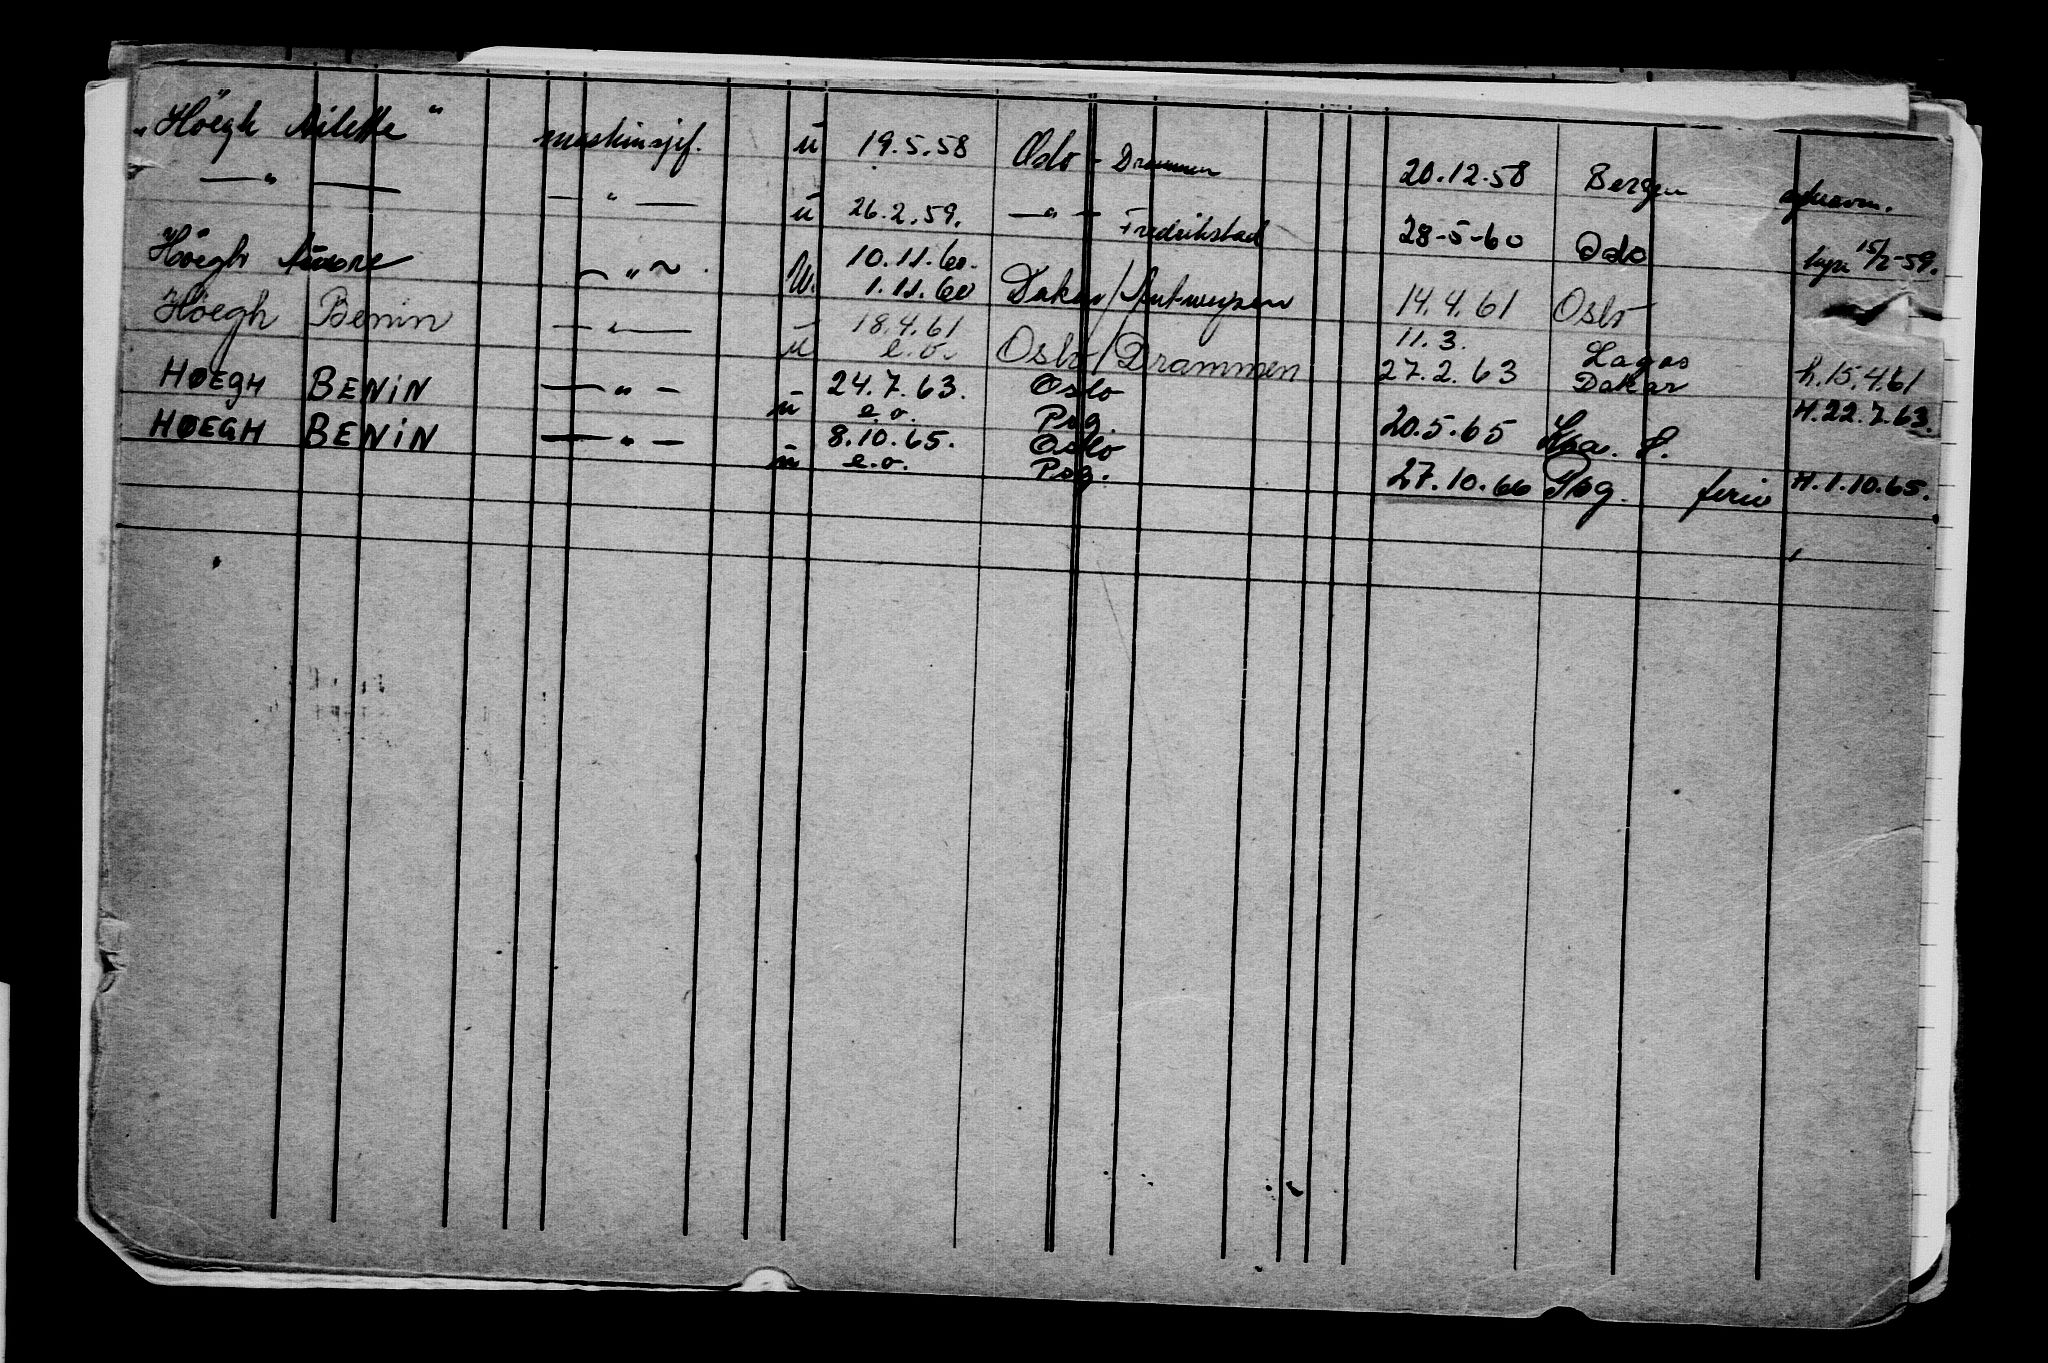 "Höegh Ailette" maskinsjef. ü 19.5.58 Oslo - Drammen 20.12.58 Bergen
— " — — " — ü 26.2.59. — " — Fredrikstad 28-5-60 Oslo 15/2-59.
Höegh — " ~ . 10.11.60.
1.11.60 Dakar/Antwerpen 14.4.61 Oslo
Höegh Benin — " — 18.4.61 11.3. Lagos
ü e.o. Oslo/Drammen 27.2.63 Dakar h.15.4.61
HØEGH BENIN — " — 24.7.63. Oslo H.22.7.63.
ü e.o. Psg. 20.5.65
HØEGH BENIN — " — 8.10.65. Oslo
ü e.o. Psg. 27.10.66 Psg. ferie H.1.10.65.